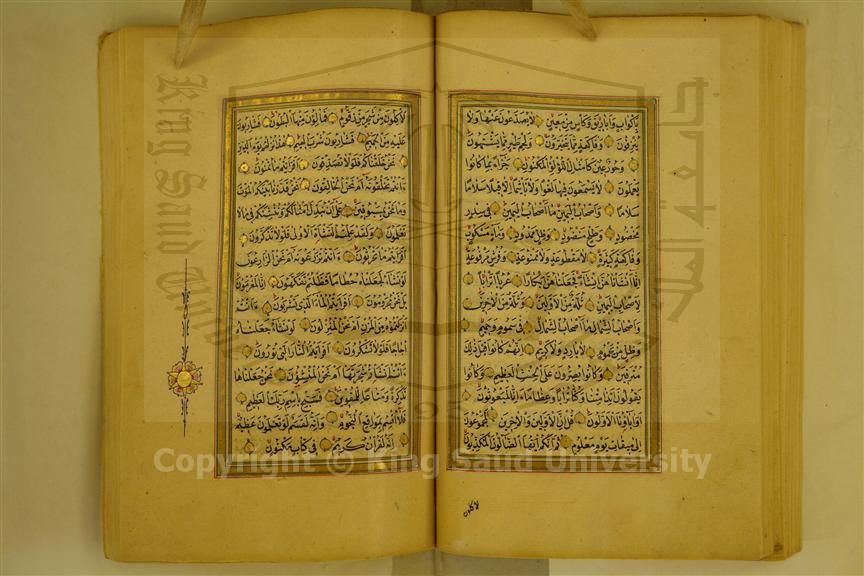 بأكواب وأباريق وكأس من معين لا يصدعون عنها ولا
ينزفون وفاكهة مما يتخيرون ولحم طير مما يشتهون
وحور عين كأمثال اللؤلؤ المكنون جزاء بما كانوا
يعملون لا يسمعون فيها لغوا ولا تأثيما إلا قيلا سلاما
سلاما وأصحاب اليمين ما أصحاب اليمين في سدر
مخضود وطلح منضود وظل ممدود وماء مسكوب
وفاكهة كثيرة لا مقطوعة ولا ممنوعة وفرش مرفوعة
إنا أنشأناهن إنشاء فجعلناهن أبكارا عربا أترابا
لأصحاب اليمين ثلة من الأولين وثلة من الآخرين
وأصحاب الشمال ما أصحاب الشمال في سموم وحميم
وظل من يحموم لا بارد ولا كريم إنهم كانوا قبل ذلك
مترفين وكانوا يصرون على الحنث العظيم وكانوا
يقولون أئذا متنا وكنا ترابا وعظاما أئنا لمبعوثون
أوآباؤنا الأولون قل إن الأولين والآخرين لمجموعون
إلى ميقات يوم معلوم ثم إنكم أيها الضالون المكذبون
لآكلون
لآكلون من شجر من زقوم فمالئون منها البطون فشاربون
عليه من الحميم فشاربون شرب الهيم هذا نزلهم يوم الدين
نحن خلقناكم فلولا تصدقون أفرأيتم ما تمنون
أأنتم تخلقونه أم نحن الخالقون نحن قدرنا بينكم الموت
وما نحن بمسبوقين على أن نبدل أمثالكم وننشئكم في ما لا
تعلمون ولقد علمتم النشأة الأولى فلولا تذكرون
أفرأيتم ما تحرثون أأنتم تزرعونه أم نحن الزارعون
لو نشاء لجعلناه حطاما فظلتم تفكهون إنا لمغرمون
بل نحن محرومون أفرأيتم الماء الذي تشربون أأنتم
أنزلتموه من المزن أم نحن المنزلون لو نشاء جعلناه
أجاجا فلولا تشكرون أفرأيتم النار التي تورون
أأنتم أنشأتم شجرتها أم نحن المنشئون نحن جعلناها
تذكرة ومتاعا للمقوين فسبح باسم ربك العظيم
فلا أقسم بمواقع النجوم وإنه لقسم لو تعلمون عظيم
إنه لقرآن كريم في كتاب مكنون
King Saud University
جامعة الملك سعود
Copyright © King Saud University